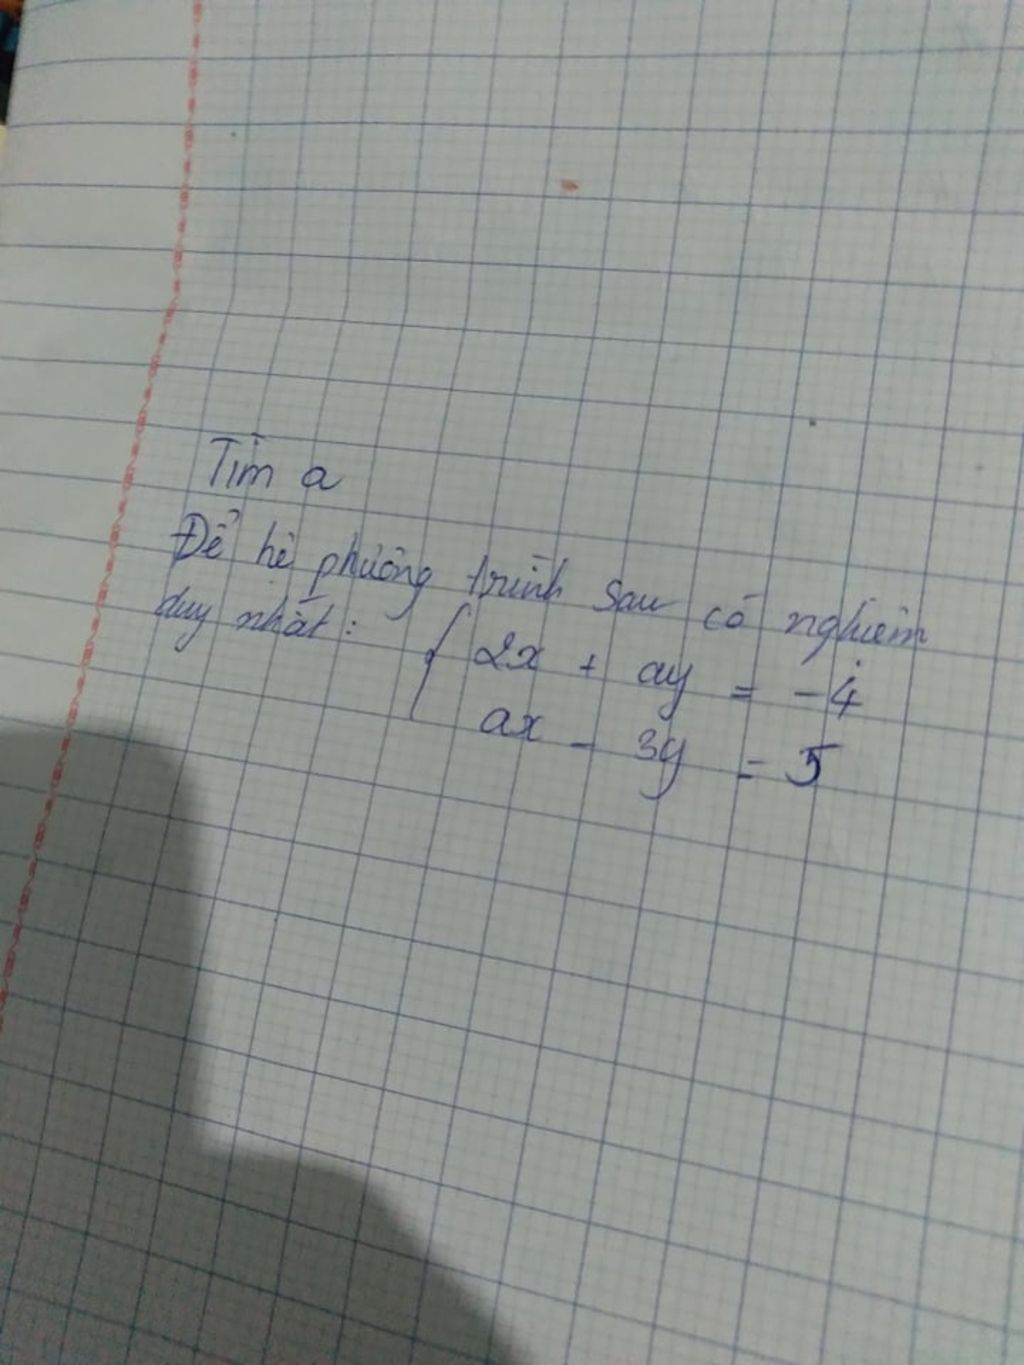 Tìm a
Để hệ phương trình sau có nghiệm
duy nhất: { 2x + ay = -4
ax - 3y = 5